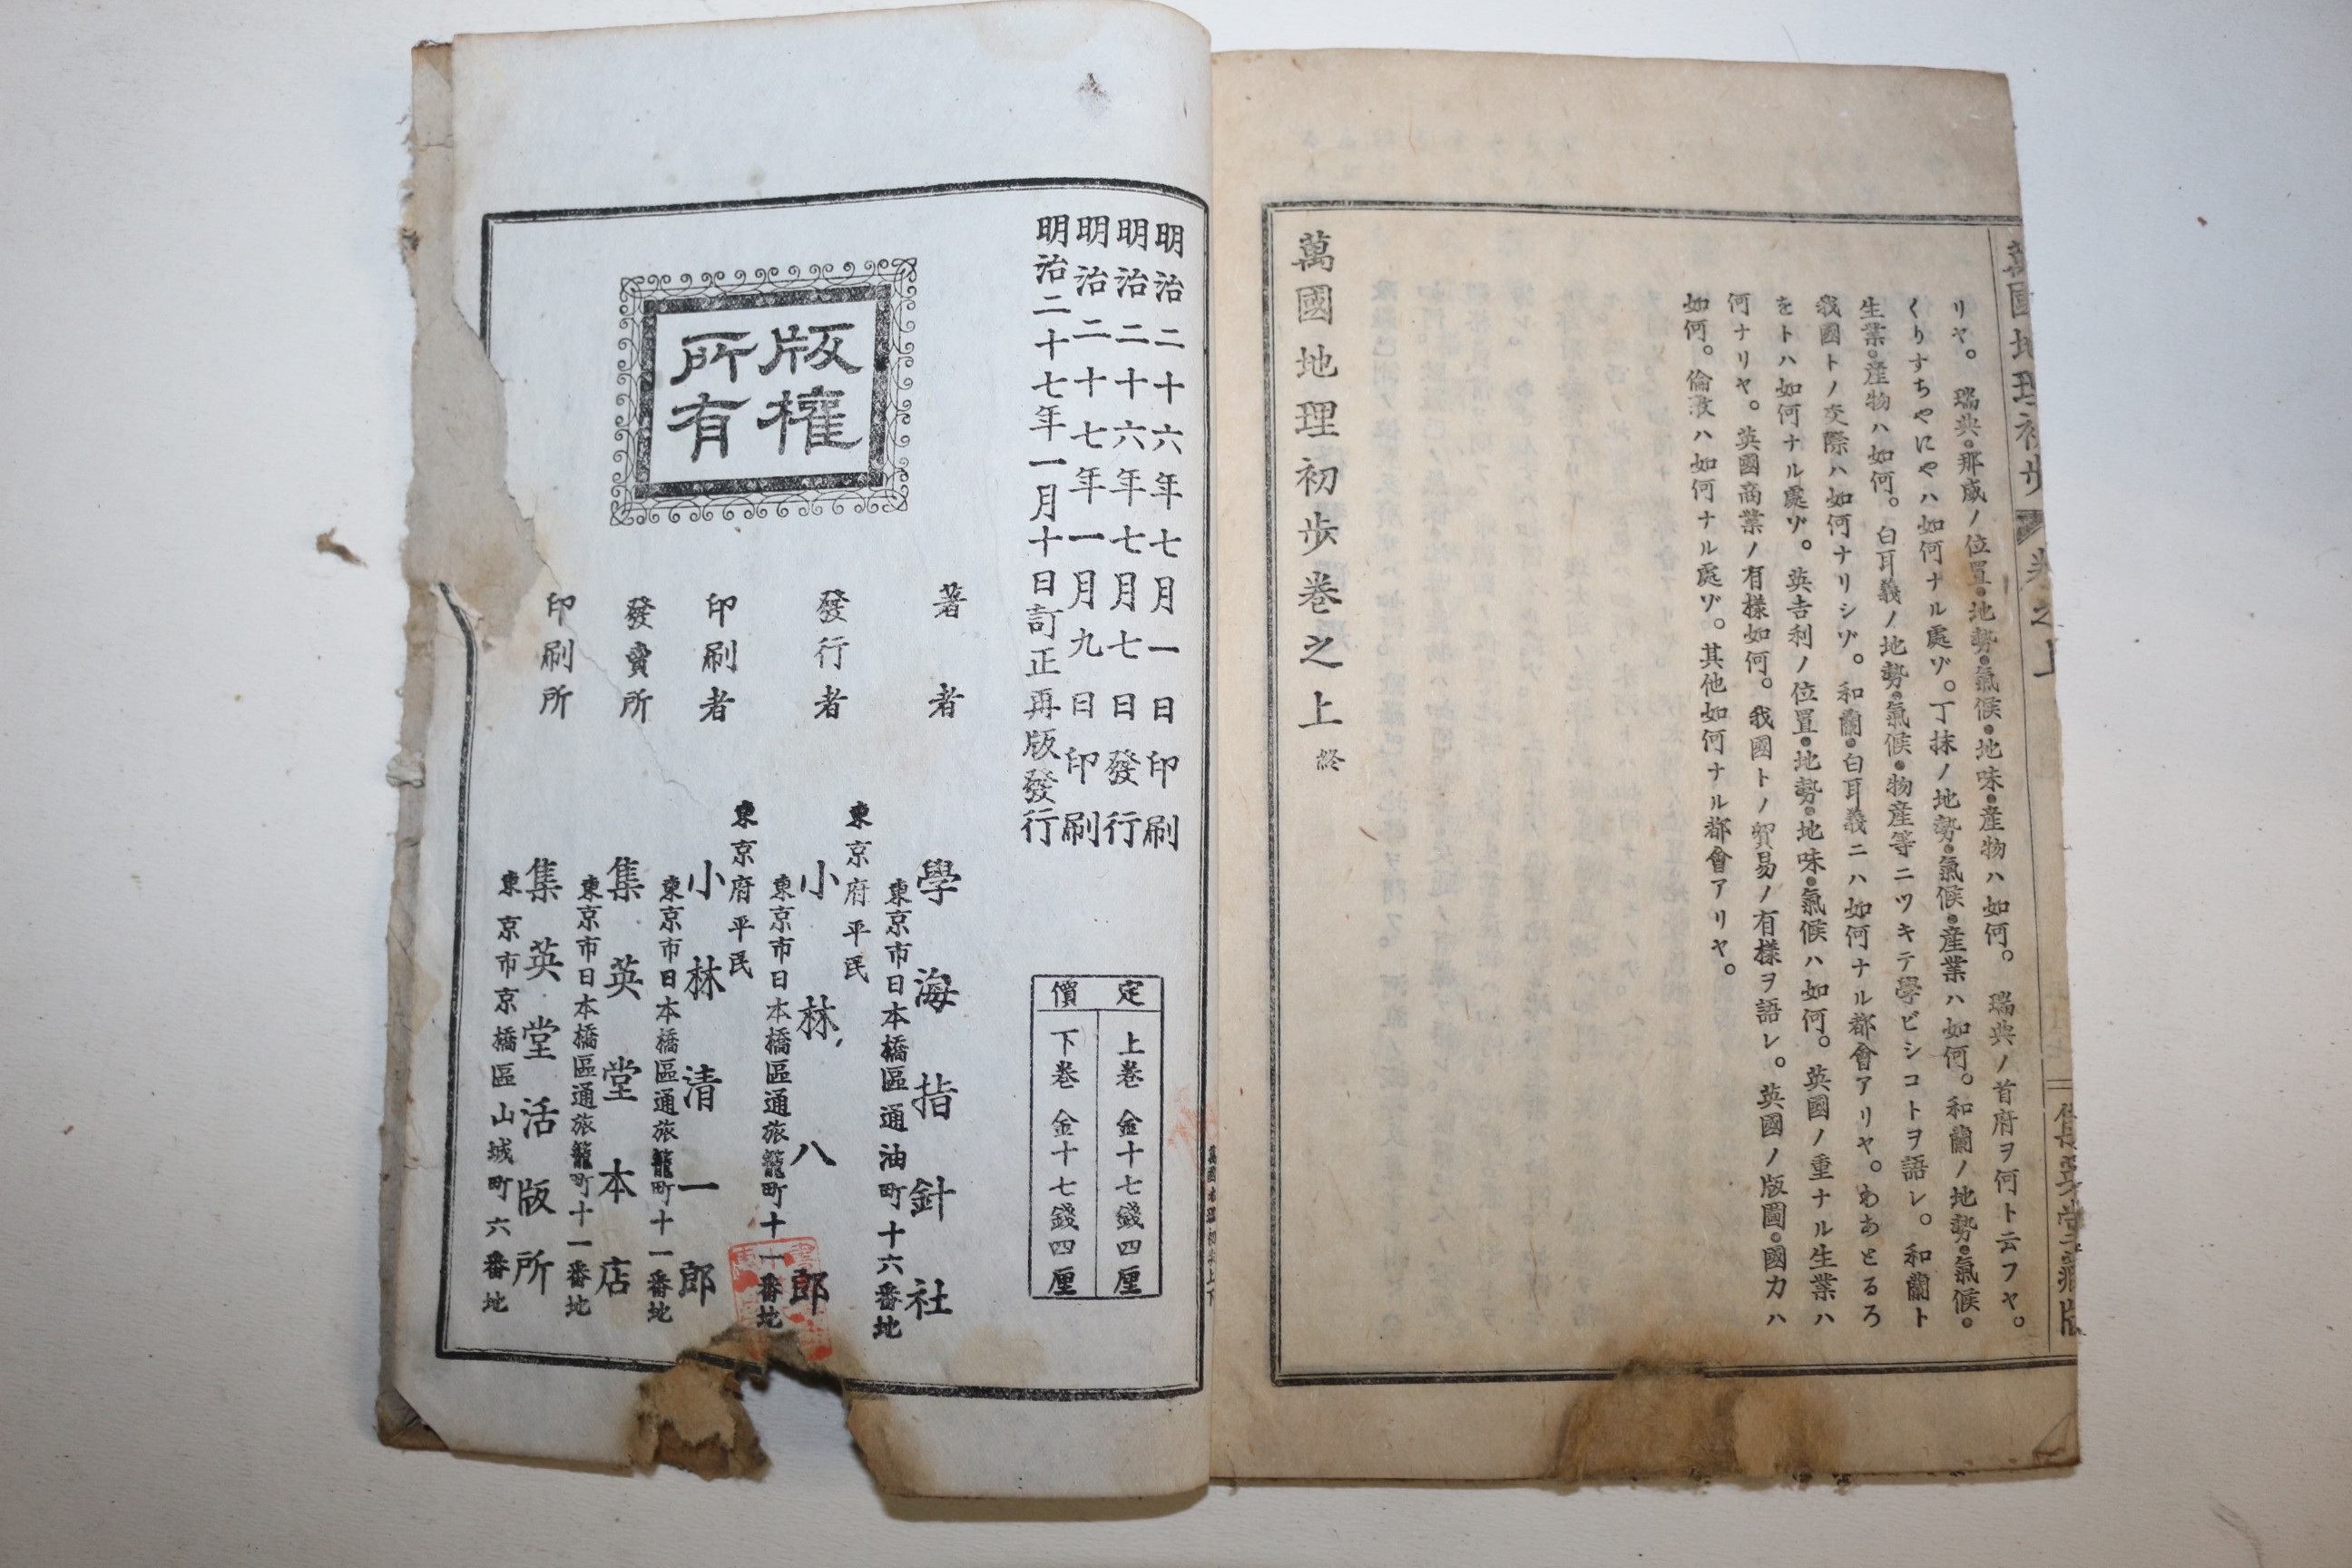 萬國地理初步 卷之上 集英堂藏版
リヤ。瑞典・那威ノ位置・地勢・氣候・地味・産物ハ如何。瑞典ノ首府ヲ何ト云フヤ。
くりすちやにやハ如何ナル處ゾ。丁抹ノ地勢・氣候・産業ハ如何。和蘭ノ地勢・氣候・
生業・産物ハ如何。白耳義ノ地勢・氣候・物産等ニツキテ學ビシコトヲ語レ。和蘭ト
我國トノ交際ハ如何ナリシゾ。和蘭・白耳義ニハ如何ナル都會アリヤ。わあとるろ
をトハ如何ナル處ゾ。英吉利ノ位置・地勢・地味・氣候ハ如何。英國ノ重ナル生業ハ
何ナリヤ。英國商業ノ有樣如何。我國トノ貿易ノ有樣ヲ語レ。英國ノ版圖・國力ハ
如何。倫敦ハ如何ナル處ゾ。其他如何ナル都會アリヤ。
萬國地理初步卷之上 終
明治二十六年七月一日印刷
明治二十六年七月七日發行
明治二十七年一月九日印刷
明治二十七年一月十日訂正再版發行
定價
上卷 金十七錢四厘
下卷 金十七錢四厘
版權所有
著者 學海指針社
東京市日本橋區通油町十六番地
東京府平民
發行者 小林八郎
東京市日本橋區通旅籠町十一番地
東京府平民
印刷者 小林清一郎
東京市日本橋區通旅籠町十一番地
發賣所 集英堂本店
東京市日本橋區通旅籠町十一番地
印刷所 集英堂活版所
東京市京橋區山城町六番地